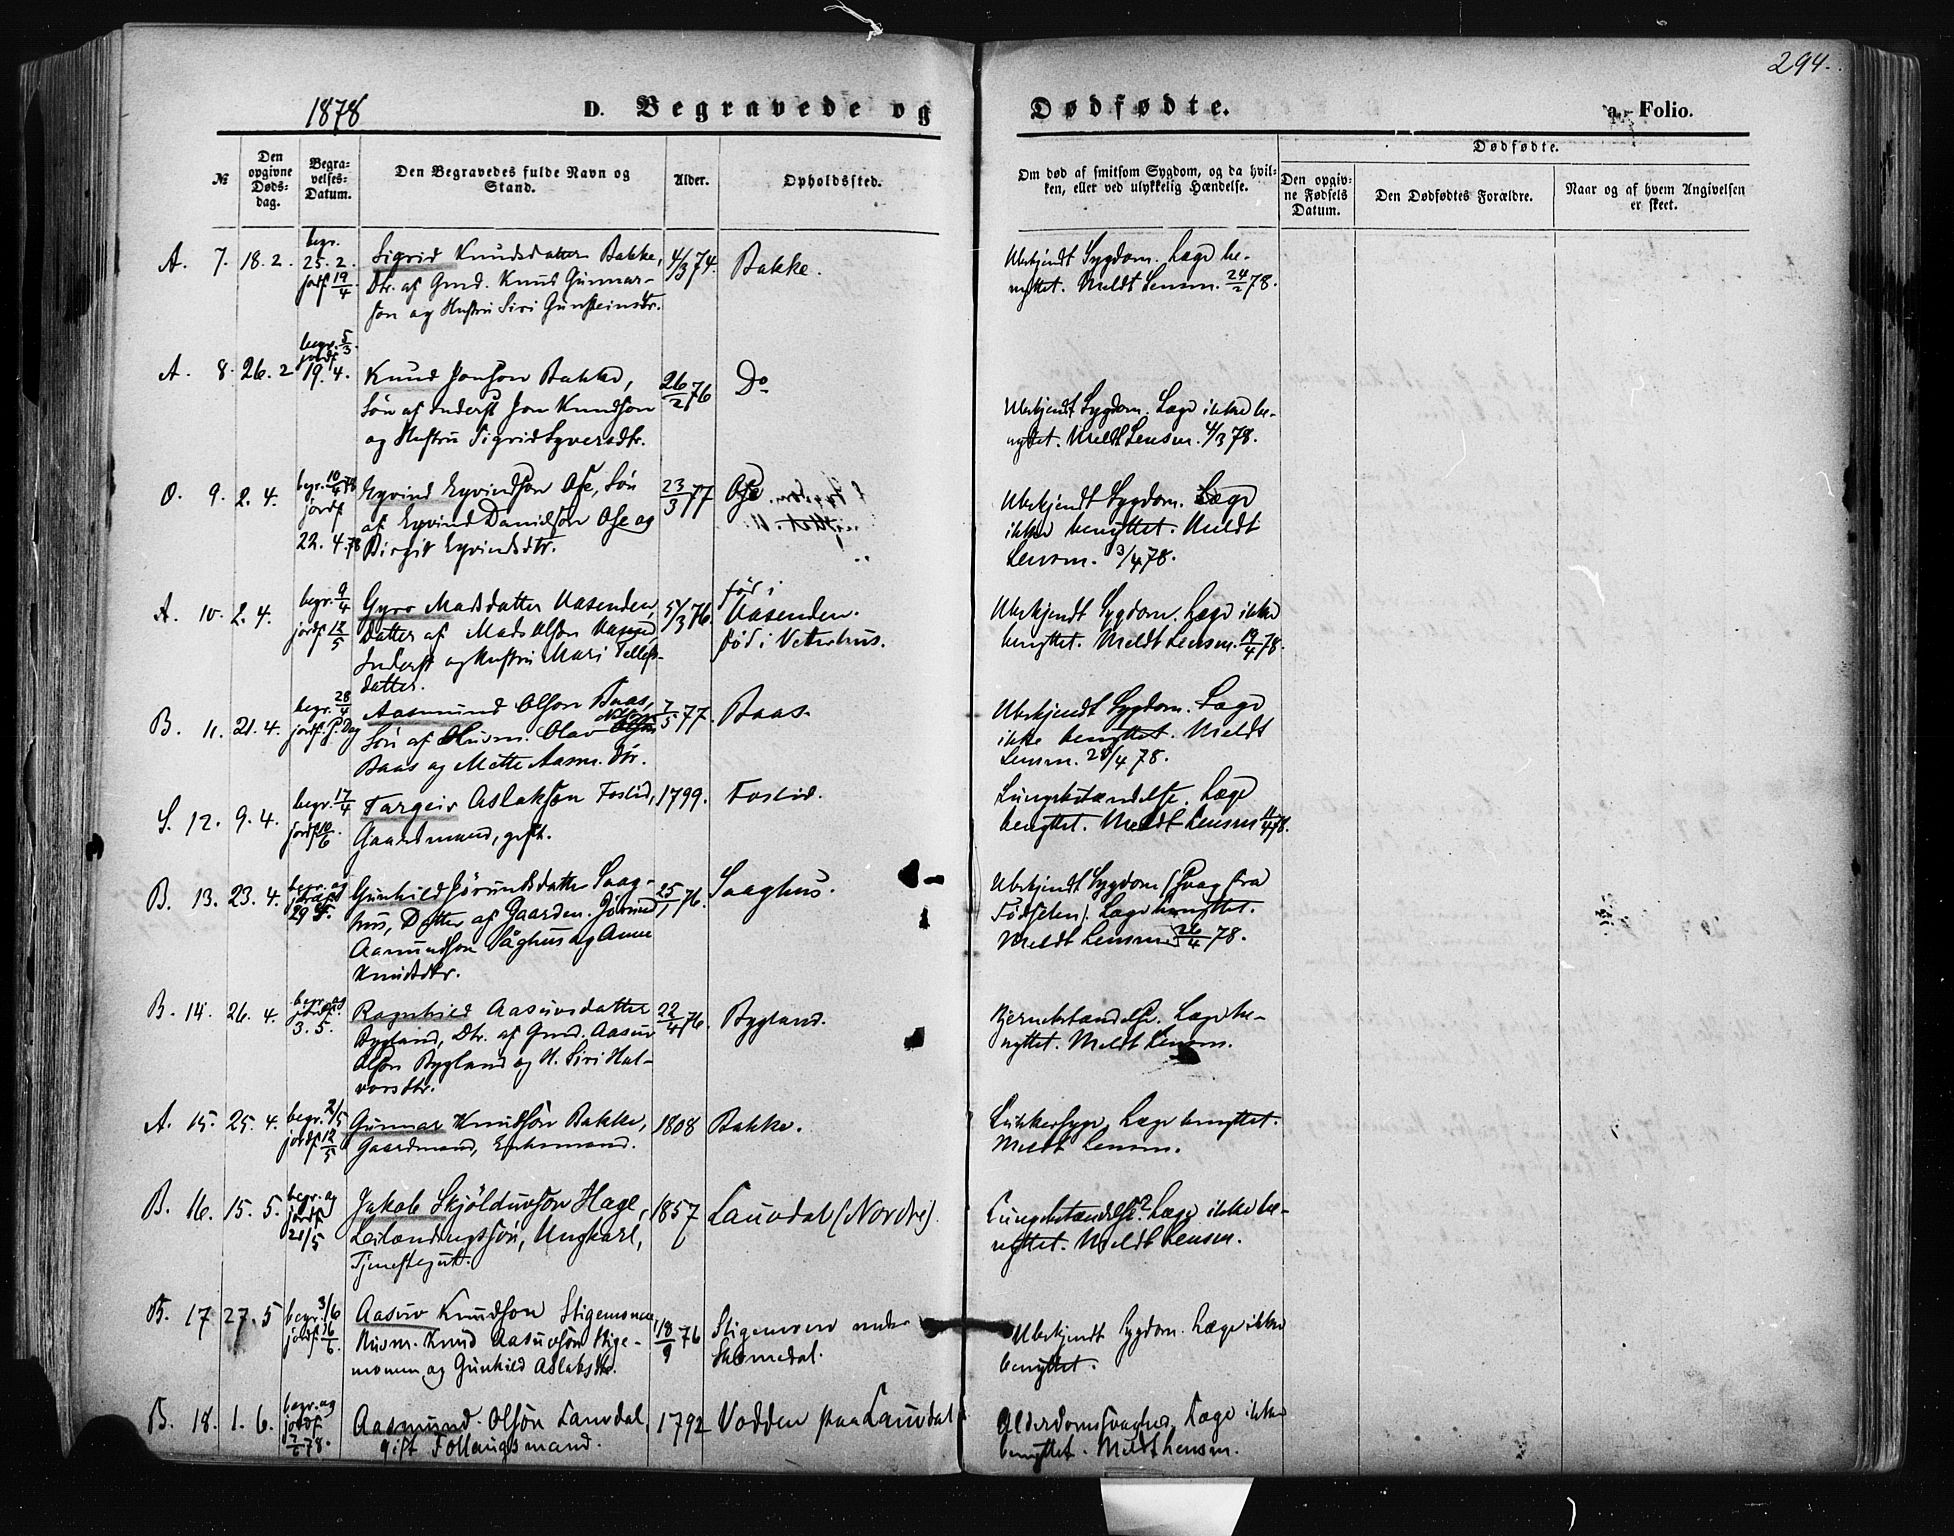 294.
1878
D. Begravede og Dødfødte.
a. Folio.
№
Den opgivne Døds-dag.
Begra-velses-Datum.
Den Begravedes fulde Navn og Stand.
Alder.
Opholdssted.
Om død af smitsom Sygdom, og da hvil-
ken, eller ved ulykkelig Hændelse.
Dødfødte.
Den opgiv-
ne Fødsels
Datum.
Den Dødfødtes Forældre.
Naar og af hvem Angivelsen
er skeet.
A. 7. 18. 2. begr. 25. 2. jordf. 19/4
Sigrid Knudsdatter Bakke, 4/3 74. Bakke.
Dtr. af Gmd. Knud Gunnar-
son og Hustru Siri Gunsteinsdtr.
Ubekjendt Sygdom. Læge be-
nyttet. Meldt Lensm. 24/2 78.
A. 8. 26. 2 begr. 5/3 jordf. 19. 4.
Knud Jonson Bakke, 26/2 76 Do
Søn af Inderst Jon Knudson
og Hustru Sigrid Syversdtr.
Ubekjendt Sygdom. Læge ikke be-
nyttet. Meldt Lensm. 4/3 78.
O. 9. 2. 4. begr. 10/4 78 jordf 22. 4. 78
Eyvind Eyvindson Ose, Søn 23/3 77 Ose
af Eyvind Danielson Ose og
Birgit Eyvindsdtr.
Ubekjendt Sygdom. Læge
ikke benyttet. Meldt
Lensm. 3/4 78.
A. 10. 2. 4. begr. 9/4 jordf 12/5
Gyro Madsdatter Vasenden, 5/3 76. død i Vasenden.
Datter af Mads Olson født i Veterhus.
Inderst og Hustru Mari Tellefs-
datter.
Ubekjendt Sygdom. Læge ikke
benyttet. Meldt Lensm. 19/4 78.
B. 11. 21. 4. begr. 28/4 jordf. S. Dag
Aasmund Olson Baas, 7/5 77. Baas.
Søn af Huusm. Olav Nilson
Baas og Mette Aasm. dtr.
Ubekjendt Sygdom. Læge
ikke benyttet. Meldt
Lensm. 28/4 78.
S. 12. 9. 4. begr. 17/4 jordf 10/6.
Targeir Aslakson Foslid, 1799. Foslid.
Gaardmand, gift.
Lungebetændelse. Læge
benyttet. Meldt Lensm 11/4 78.
B. 13. 23. 4. begr. og jordf. 29. 4.
Gunhild Jörundsdatter Saag- 25/1 76. Saaghus.
hus, Datter af Gaardm. Jörund
Aamundson Såghus og Anne
Knudsdtr.
Ubekjendt Sygdom (Svag fra
Fødselen). Læge benyttet.
Meldt Lensm. 26/4 78.
B. 14. 26. 4. begr. og jordf. 3. 5.
Ragnhild Aasuvsdatter 22/4 76. Bygland.
Bygland, Dtr. af Gmd. Aasuv
Olson Bygland og H. Siri Hal-
vorsdtr.
Hjernebetændelse. Læge be-
nyttet. Meldt Lensm.
A. 15. 25. 4. begr. 2/5 jordf 12/5
Gunnar Knudson Bakke, 1808 Bakke.
Gaardmand, Enkemand.
Sukkersyge. Læge benyttet.
Meldt Lensm.
B. 16. 15. 5. begr. og jordf 21/5
Jakob Skjölduvson Hage, 1857 Lauvdal (Nordre).
Leilændingssön, Ungkarl,
Tjenestegut.
Lungebetændelse? Læge ikke be-
nyttet. Meldt Lensm.
B. 17 27. 5 begr. 3/6 jordf. 16/6
Aasuv Knudson Stigemoen 18/9 76 Stigemoen under
Huusm. Knud Aasuvson Stige- Skomedal.
momoen og Gunhild Aslaksdtr.
Ubekjendt Sygdom. Læge ikke
benyttet.
B. 18. 1. 6. begr. og jordf 7/6 78.
Aasmund Olsön Lauvdal, 1792 Vodden paa Lauvdal
gift Föllaugsmand.
Alderdomssvaghed, Læge ikke
benyttet. Meldt Lensm.